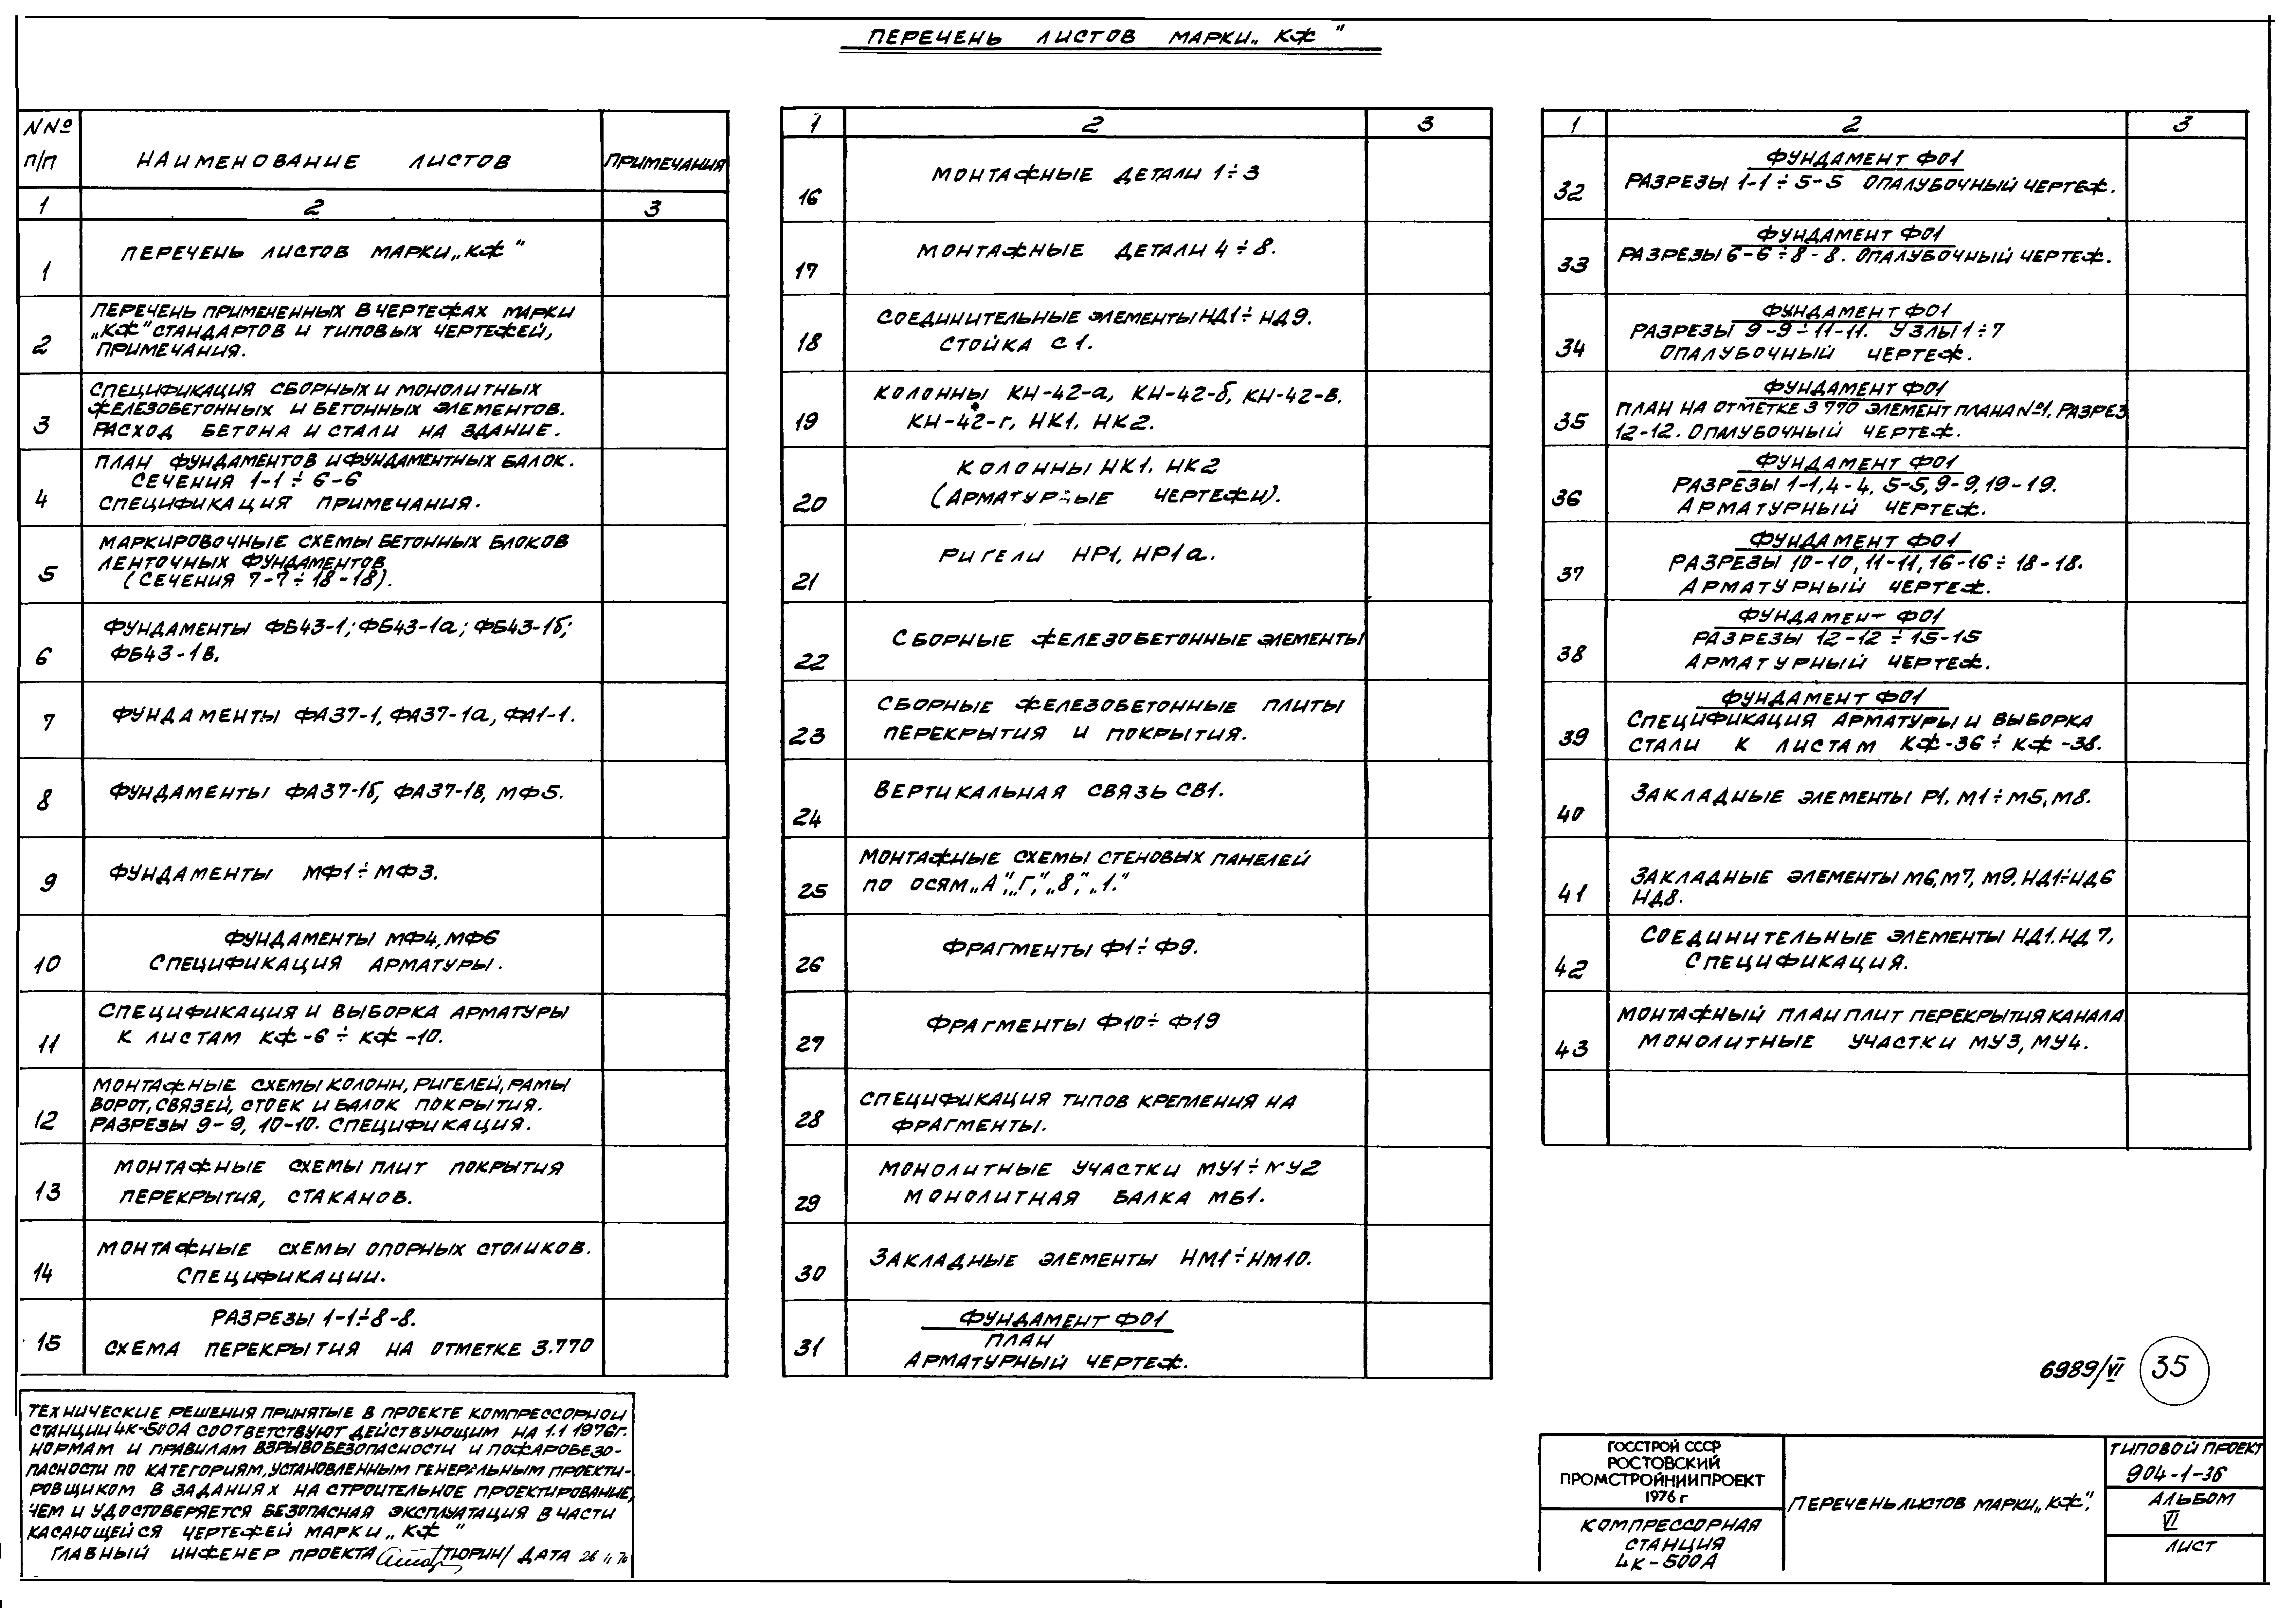 ПЕРЕЧЕНЬ ЛИСТОВ МАРКИ „КЖ"
NNº п/п
НАИМЕНОВАНИЕ ЛИСТОВ
ПРИМЕЧАНИЯ
1 2 3
1 ПЕРЕЧЕНЬ ЛИСТОВ МАРКИ „КЖ"
2 ПЕРЕЧЕНЬ ПРИМЕНЕННЫХ В ЧЕРТЕЖАХ МАРКИ
„КЖ" СТАНДАРТОВ И ТИПОВЫХ ЧЕРТЕЖЕЙ,
ПРИМЕЧАНИЯ.
3 СПЕЦИФИКАЦИЯ СБОРНЫХ И МОНОЛИТНЫХ
ЖЕЛЕЗОБЕТОННЫХ И БЕТОННЫХ ЭЛЕМЕНТОВ.
РАСХОД БЕТОНА И СТАЛИ НА ЗДАНИЕ.
4 ПЛАН ФУНДАМЕНТОВ И ФУНДАМЕНТНЫХ БАЛОК.
СЕЧЕНИЯ 1-1÷6-6
СПЕЦИФИКАЦИЯ ПРИМЕЧАНИЯ.
5 МАРКИРОВОЧНЫЕ СХЕМЫ БЕТОННЫХ БЛОКОВ
ЛЕНТОЧНЫХ ФУНДАМЕНТОВ
(СЕЧЕНИЯ 7-7÷18-18).
6 ФУНДАМЕНТЫ ФБ43-1; ФБ43-1а; ФБ43-1б;
ФБ43-1в.
7 ФУНДАМЕНТЫ ФА37-1, ФА37-1а, ФА1-1.
8 ФУНДАМЕНТЫ ФА37-1б, ФА37-1в, МФ5.
9 ФУНДАМЕНТЫ МФ1÷МФ3.
10 ФУНДАМЕНТЫ МФ4, МФ6
СПЕЦИФИКАЦИЯ АРМАТУРЫ.
11 СПЕЦИФИКАЦИЯ И ВЫБОРКА АРМАТУРЫ
К ЛИСТАМ КЖ-6÷КЖ-10.
12 МОНТАЖНЫЕ СХЕМЫ КОЛОНН, РИГЕЛЕЙ, РАМЫ
ВОРОТ, СВЯЗЕЙ, СТОЕК И БАЛОК ПОКРЫТИЯ.
РАЗРЕЗЫ 9-9, 10-10. СПЕЦИФИКАЦИЯ.
13 МОНТАЖНЫЕ СХЕМЫ ПЛИТ ПОКРЫТИЯ
ПЕРЕКРЫТИЯ, СТАКАНОВ.
14 МОНТАЖНЫЕ СХЕМЫ ОПОРНЫХ СТОЛИКОВ.
СПЕЦИФИКАЦИИ.
15 РАЗРЕЗЫ 1-1÷8-8.
СХЕМА ПЕРЕКРЫТИЯ НА ОТМЕТКЕ 3.770
1 2 3
16 МОНТАЖНЫЕ ДЕТАЛИ 1÷3
17 МОНТАЖНЫЕ ДЕТАЛИ 4÷8.
18 СОЕДИНИТЕЛЬНЫЕ ЭЛЕМЕНТЫ НД1÷НД9.
СТОЙКА С1.
19 КОЛОННЫ КН-42-а, КН-42-б, КН-42-в.
КН-42-г, НК1, НК2.
20 КОЛОННЫ НК1. НК2
(АРМАТУРНЫЕ ЧЕРТЕЖИ).
21 РИГЕЛИ НР1, НР1а.
22 СБОРНЫЕ ЖЕЛЕЗОБЕТОННЫЕ ЭЛЕМЕНТЫ
23 СБОРНЫЕ ЖЕЛЕЗОБЕТОННЫЕ ПЛИТЫ
ПЕРЕКРЫТИЯ И ПОКРЫТИЯ.
24 ВЕРТИКАЛЬНАЯ СВЯЗЬ СВ1.
25 МОНТАЖНЫЕ СХЕМЫ СТЕНОВЫХ ПАНЕЛЕЙ
ПО ОСЯМ „А", „Г", „8", „1."
26 ФРАГМЕНТЫ Ф1÷Ф9.
27 ФРАГМЕНТЫ Ф10÷Ф19
28 СПЕЦИФИКАЦИЯ ТИПОВ КРЕПЛЕНИЯ НА
ФРАГМЕНТЫ.
29 МОНОЛИТНЫЕ УЧАСТКИ МУ1÷МУ2
МОНОЛИТНАЯ БАЛКА МБ1.
30 ЗАКЛАДНЫЕ ЭЛЕМЕНТЫ НМ1÷НМ10.
31 ФУНДАМЕНТ Ф01
ПЛАН
АРМАТУРНЫЙ ЧЕРТЕЖ.
1 2 3
32 ФУНДАМЕНТ Ф01
РАЗРЕЗЫ 1-1÷5-5 ОПАЛУБОЧНЫЙ ЧЕРТЕЖ.
33 ФУНДАМЕНТ Ф01
РАЗРЕЗЫ 6-6÷8-8. ОПАЛУБОЧНЫЙ ЧЕРТЕЖ.
34 ФУНДАМЕНТ Ф01
РАЗРЕЗЫ 9-9÷11-11. УЗЛЫ 1÷7
ОПАЛУБОЧНЫЙ ЧЕРТЕЖ.
35 ФУНДАМЕНТ Ф01
ПЛАН НА ОТМЕТКЕ 3 770 ЭЛЕМЕНТ ПЛАНА №1. РАЗРЕЗ
12-12. ОПАЛУБОЧНЫЙ ЧЕРТЕЖ.
36 ФУНДАМЕНТ Ф01
РАЗРЕЗЫ 1-1, 4-4, 5-5, 9-9, 19-19.
АРМАТУРНЫЙ ЧЕРТЕЖ.
37 ФУНДАМЕНТ Ф01
РАЗРЕЗЫ 10-10, 11-11, 16-16÷18-18.
АРМАТУРНЫЙ ЧЕРТЕЖ.
38 ФУНДАМЕНТ Ф01
РАЗРЕЗЫ 12-12÷15-15
АРМАТУРНЫЙ ЧЕРТЕЖ.
39 ФУНДАМЕНТ Ф01
СПЕЦИФИКАЦИЯ АРМАТУРЫ И ВЫБОРКА
СТАЛИ К ЛИСТАМ КЖ-36÷КЖ-38.
40 ЗАКЛАДНЫЕ ЭЛЕМЕНТЫ Р1. М1÷М5, М8.
41 ЗАКЛАДНЫЕ ЭЛЕМЕНТЫ М6, М7, М9. НД1÷НД6
НД8.
42 СОЕДИНИТЕЛЬНЫЕ ЭЛЕМЕНТЫ НД1. НД7,
СПЕЦИФИКАЦИЯ.
43 МОНТАЖНЫЙ ПЛАН ПЛИТ ПЕРЕКРЫТИЯ КАНАЛА
МОНОЛИТНЫЕ УЧАСТКИ МУ3, МУ4.
6989/VI 35
ТЕХНИЧЕСКИЕ РЕШЕНИЯ ПРИНЯТЫЕ В ПРОЕКТЕ КОМПРЕССОРНОЙ
СТАНЦИИ 4К-500А СООТВЕТСТВУЮТ ДЕЙСТВУЮЩИМ НА 1.1 1976г.
НОРМАМ И ПРАВИЛАМ ВЗРЫВОБЕЗОПАСНОСТИ И ПОЖАРОБЕЗО-
ПАСНОСТИ ПО КАТЕГОРИЯМ, УСТАНОВЛЕННЫМ ГЕНЕРАЛЬНЫМ ПРОЕКТИ-
РОВЩИКОМ В ЗАДАНИЯХ НА СТРОИТЕЛЬНОЕ ПРОЕКТИРОВАНИЕ,
ЧЕМ И УДОСТОВЕРЯЕТСЯ БЕЗОПАСНАЯ ЭКСПЛУАТАЦИЯ В ЧАСТИ
КАСАЮЩЕЙСЯ ЧЕРТЕЖЕЙ МАРКИ „КЖ"
ГЛАВНЫЙ ИНЖЕНЕР ПРОЕКТА /ТЮРИН/ ДАТА
ГОССТРОЙ СССР
РОСТОВСКИЙ
ПРОМСТРОЙНИИПРОЕКТ
1976 г
КОМПРЕССОРНАЯ
СТАНЦИЯ
4К-500А
ПЕРЕЧЕНЬ ЛИСТОВ МАРКИ „КЖ".
ТИПОВОЙ ПРОЕКТ
904-1-36
АЛЬБОМ
VI
ЛИСТ